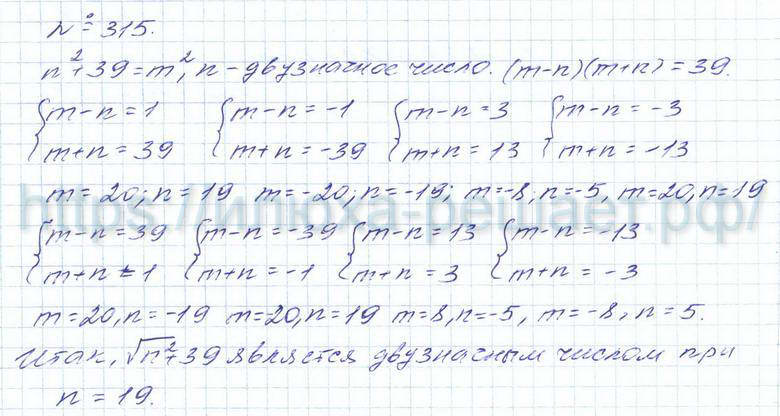 № 315.
n² + 39 = m², n - двузначное число. (m-n)(m+n) = 39.
{m-n = 1 {m-n = -1 {m-n = 3 {m-n = -3
m+n = 39 m+n = -39 m+n = 13 m+n = -13
m = 20; n = 19 m = -20; n = -19; m = -8; n = -5, m = 20, n = 19
https://илюха-решает.рф/
{m-n = 39 {m-n = -39 {m-n = 13 {m-n = -13
m+n = 1 m+n = -1 m+n = 3 m+n = -3
m = 20, n = -19 m = 20, n = 19 m = 8, n = -5, m = -8, n = 5.
Итак, √n²+39 является двузначным числом при
n = 19.